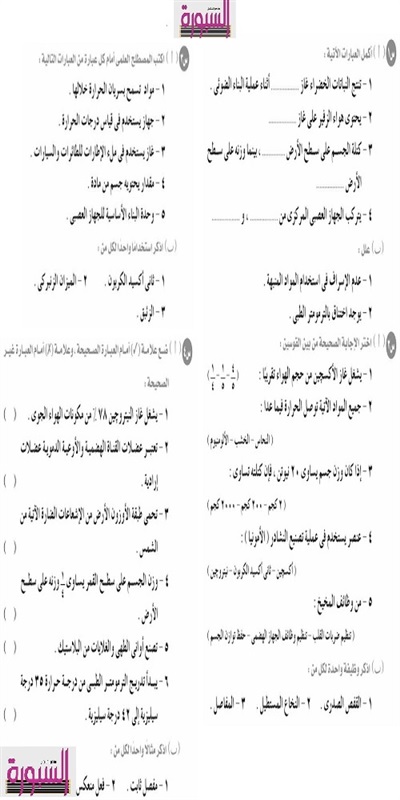 السبورة
( أ ) أكمل العبارات الآتية :
١ - تنتج النباتات الخضراء غاز ............ أثناء عملية البناء الضوئى .
٢ - يحتوى هواء الزفير على غاز ............
٣ - كتلة الجسم على سطح الأرض ............ ، بينما وزنه على سطح
الأرض ............
٤ - يتركب الجهاز العصبى المركزى من ............ ، و ............
(ب) علل :
١ - عدم الإسراف فى استخدام المواد المنبهة .
٢ - يوجد اختناق بالترمومتر الطبى .
( أ ) اختر الإجابة الصحيحة من بين القوسين :
١ - يشغل غاز الأكسجين من حجم الهواء تقريبًا :
٢ - جميع المواد الآتية توصل الحرارة فيما عدا :
(النحاس - الخشب - الألومنيوم)
٣ - إذا كان وزن جسم يساوى ٢٠ نيوتن ، فإن كتلته تساوى :
( ٢ كجم - ٢٠٠ كجم - ٢٠٠٠ كجم )
٤ - عنصر يستخدم فى عملية تصنيع النشادر ( الأمونيا ) :
(أكسجين - ثانى أكسيد الكربون - نيتروجين)
٥ - من وظائف المخيخ :
(تنظيم ضربات القلب - تنظيم وظائف الجهاز الهضمى - حفظ توازن الجسم)
(ب) اذكر وظيفة واحدة لكل من :
١ - القفص الصدرى . ٢ - النخاع المستطيل . ٣ - المفاصل .
( أ ) اكتب المصطلح العلمى أمام كل عبارة من العبارات التالية :
١ - مواد تسمح بسريان الحرارة خلالها .
٢ - جهاز يستخدم فى قياس درجات الحرارة .
٣ - غاز يستخدم فى ملء الإطارات للطائرات والسيارات .
٤ - مقدار يحتويه جسم من مادة .
٥ - وحدة البناء الأساسية للجهاز العصبى .
(ب) اذكر استخدامًا واحدًا لكل من :
١ - ثانى أكسيد الكربون . ٢ - الميزان الزنبركى .
٣ - الزئبق .
( أ ) ضع علامة (✓) أمام العبارة الصحيحة ، وعلامة (✗) أمام العبارة غير
الصحيحة :
١ - يشغل غاز النيتروجين ٧٨ ٪ من مكونات الهواء الجوى . ( )
٢ - تعتبر عضلات القناة الهضمية والأوعية الدموية عضلات
إرادية . ( )
٣ - تحمى طبقة الأوزون الأرض من الإشعاعات الضارة الآتية من
الشمس . ( )
٤ - وزن الجسم على سطح القمر يساوى وزنه على سطح
الأرض . ( )
٥ - تصنع أوانى الطهى والغلايات من البلاستيك . ( )
٦ - يبدأ تدريج الترمومتر الطبى من درجة حرارة ٣٥ درجة
سيليزية إلى ٤٢ درجة سيليزية . ( )
(ب) اذكر مثالًا واحدًا لكل من :
١ - مفصل ثابت . ٢ - فعل منعكس
السبورة